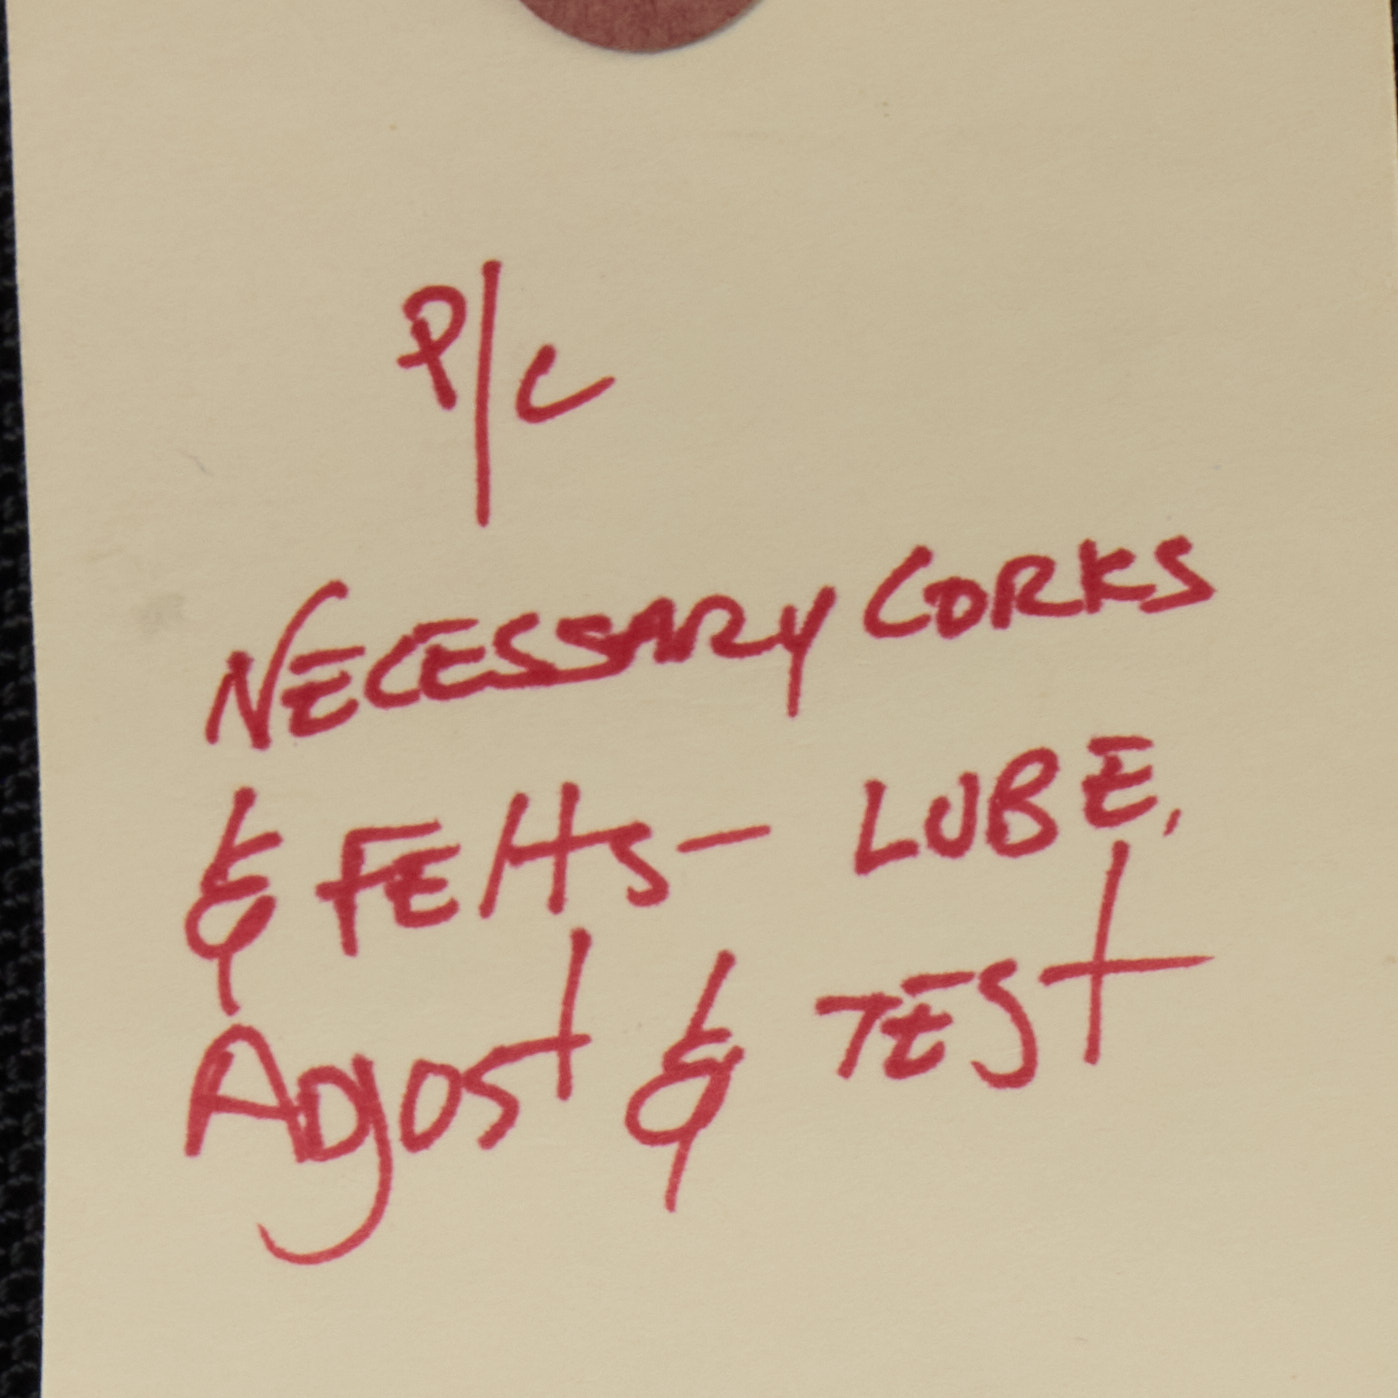 P/C
NECESSARY CORKS
& FEltS - LUBE,
ADJUST & TEST